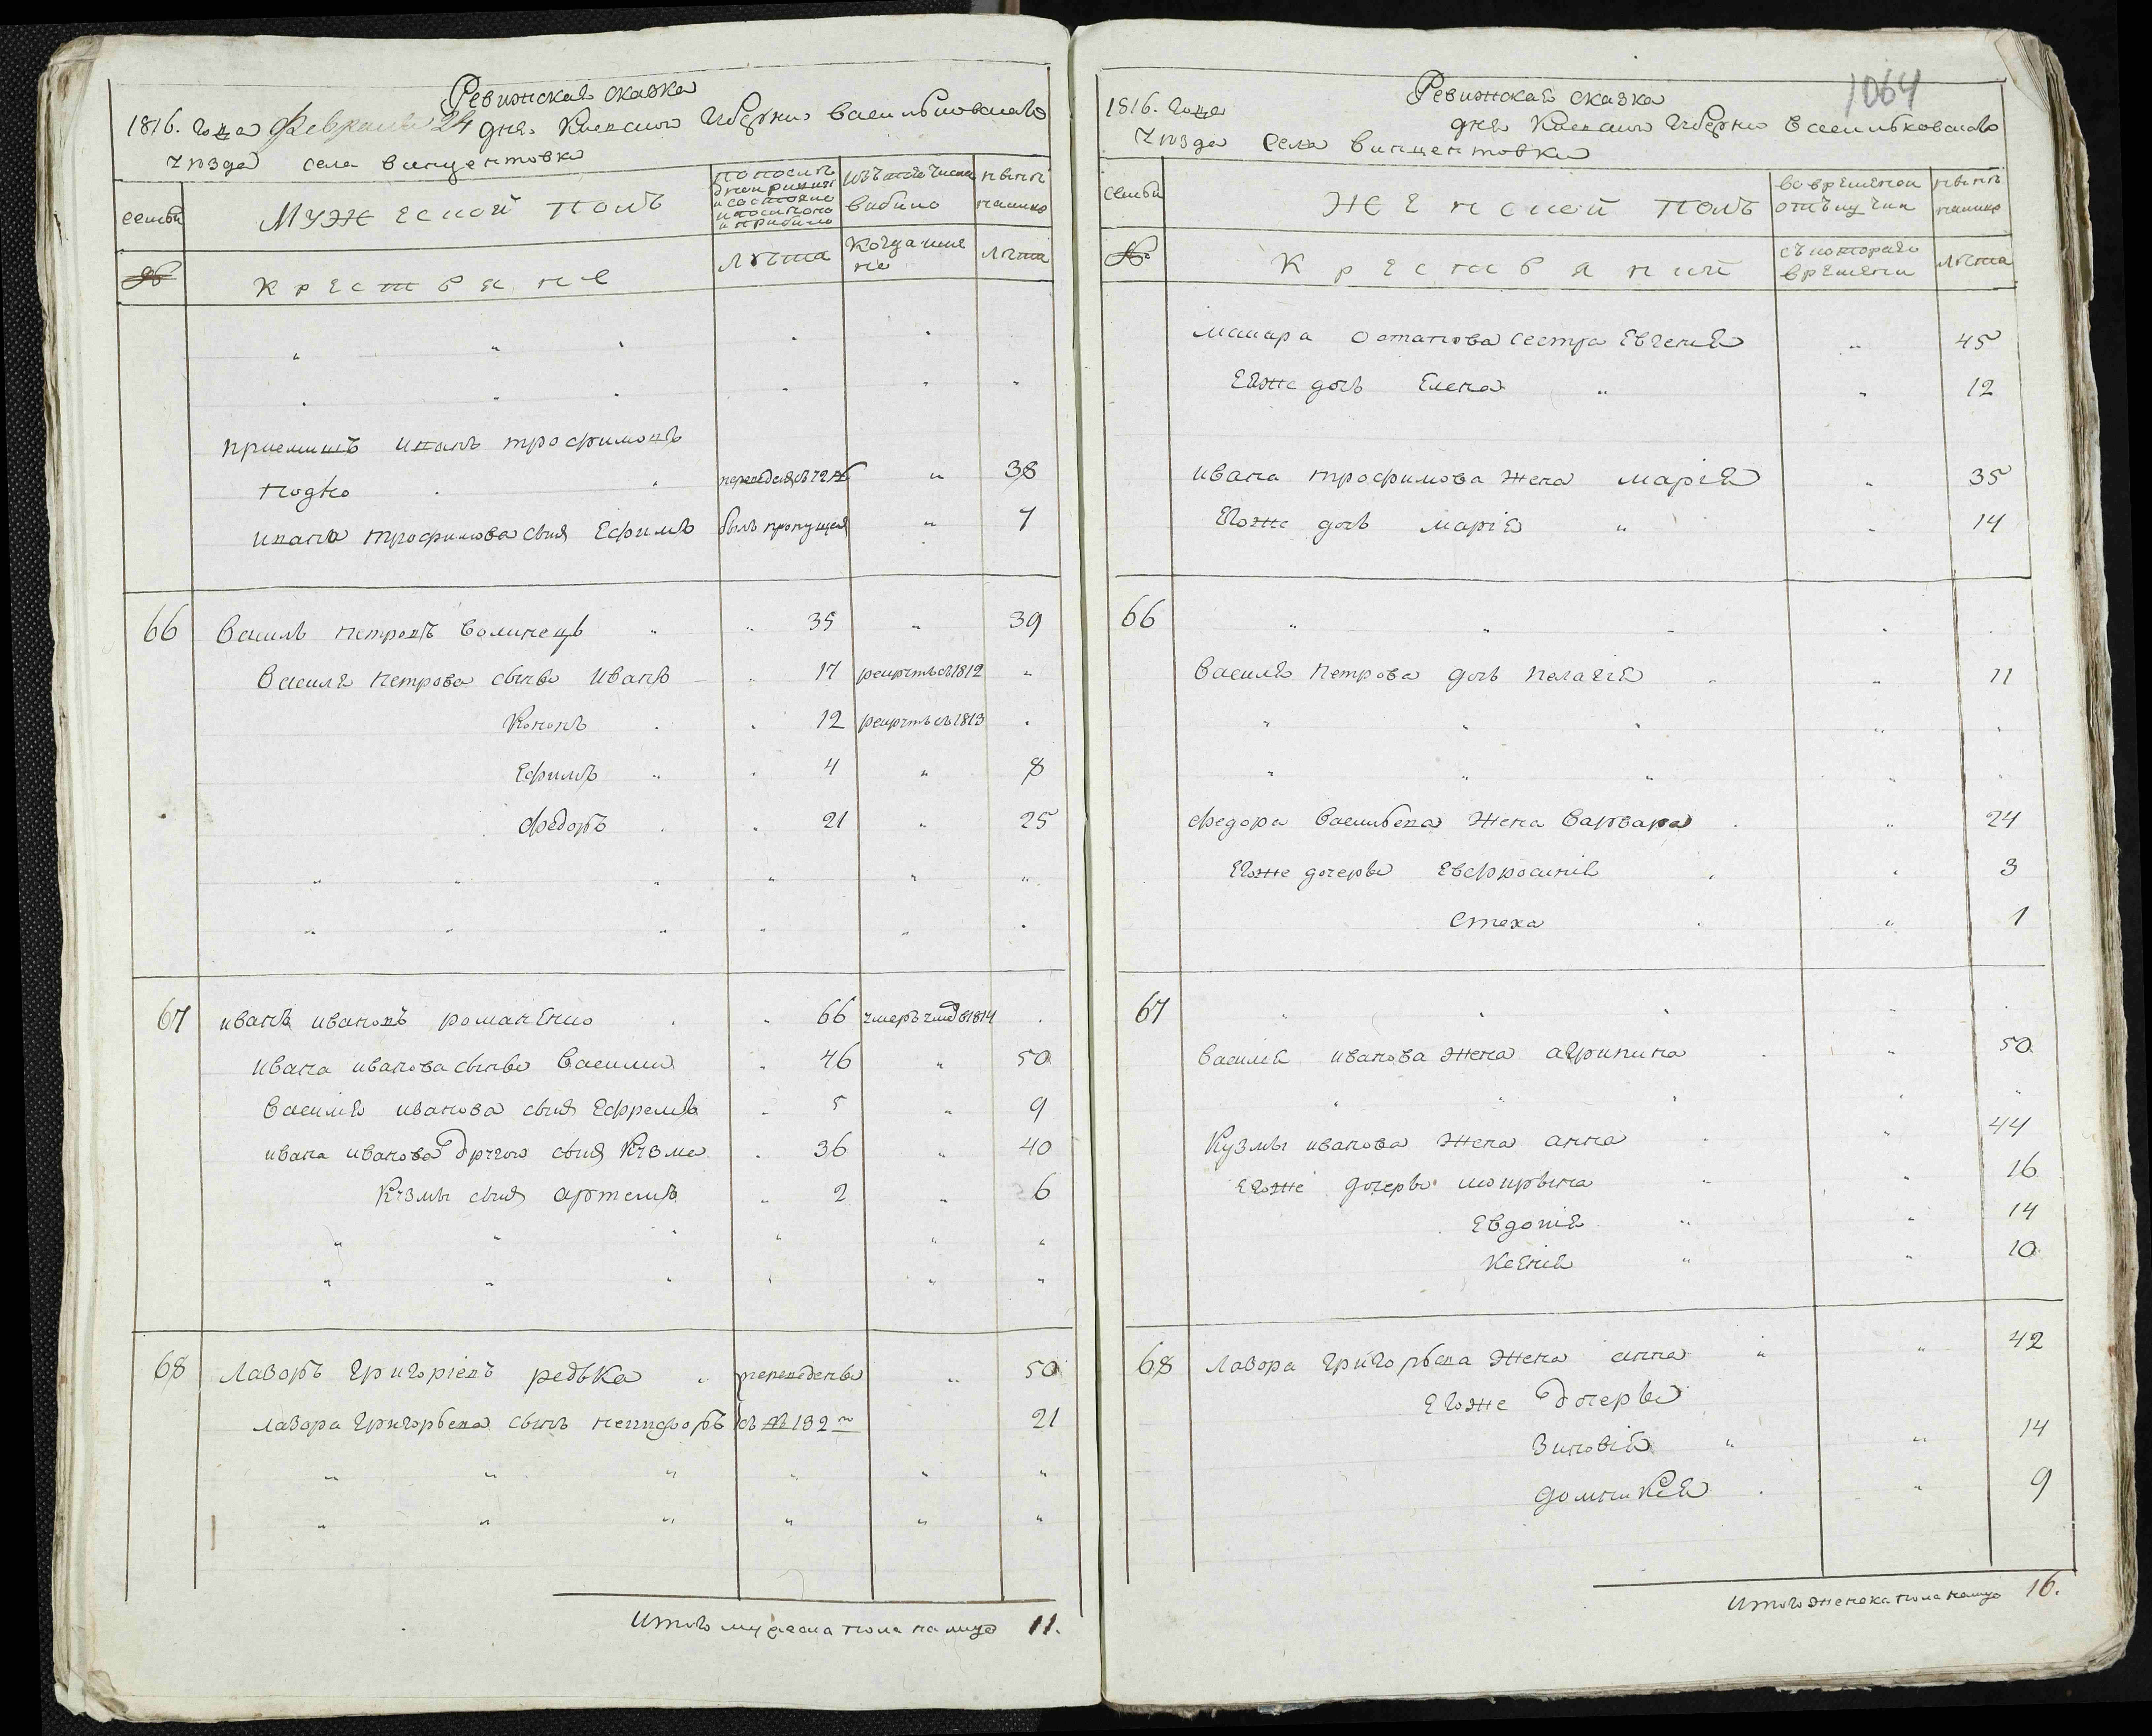 Ревижская сказка
1816. года Февраля 24 дня. Киевской Губернии Васильковскаго
уезда села Винцентовки
семьи
Мужеской полъ
по последней ревизии состояло и после того прибыло
изъ того числа выбыло
ныне налицо
№
Крестьяне
лета
когда именно
лета
Приемишъ Иванъ Трофимовъ
Родко переведенъ съ 72 № 38
Ивана Трофимова сынъ Ефимъ былъ пропущенъ 7
66 Василь Петровъ Волинецъ 35 39
Василя Петрова сынъ Иванъ 17 рекрутъ съ 1812
Кононъ 12 рекрутъ съ 1813
Ефимъ 4 8
Федоръ 21 25
67 Иванъ Ивановъ Романенко 66 умеръ 1814
Ивана Иванова сынъ Василий 46 50
Василия Иванова сынъ Ефремъ 5 9
Ивана Иванова другой сынъ Кузма 36 40
Кузмы сынъ Артемъ 2 6
68 Лаворъ Григоріевъ Редька переведены 50
Лавора Григорьева сынъ Никифоръ съ № 132го 21
Итого мужеска пола налицо 11.
1064
Ревижская сказка
1816. года дня Киевской Губернии Васильковскаго
уезда села Винцентовки
семьи
Женской полъ
во временной отлучки
ныне налицо
№
Крестьяний
съ котораго времени
лета
Макара Остапова сестра Евгения 45
Еяже дочь Елена 12
Ивана Трофимова жена Марія 35
Егоже дочь Марія 14
66
Василя Петрова дочь Палагія 11
Федора Васильева жена Варвара 24
Егоже дочеры Евфросинія 3
Стеха 1
67
Василя Иванова жена Агрипина 50
Кузмы Иванова жена Анна 44
Егоже дочеры Мокрына 16
Евдокія 14
Ксенія 10
68 Лавора Григорьева жена Анна 42
Егоже дочеры
Зиновія 14
Домникія 9
Итого женска пола налицо 16.